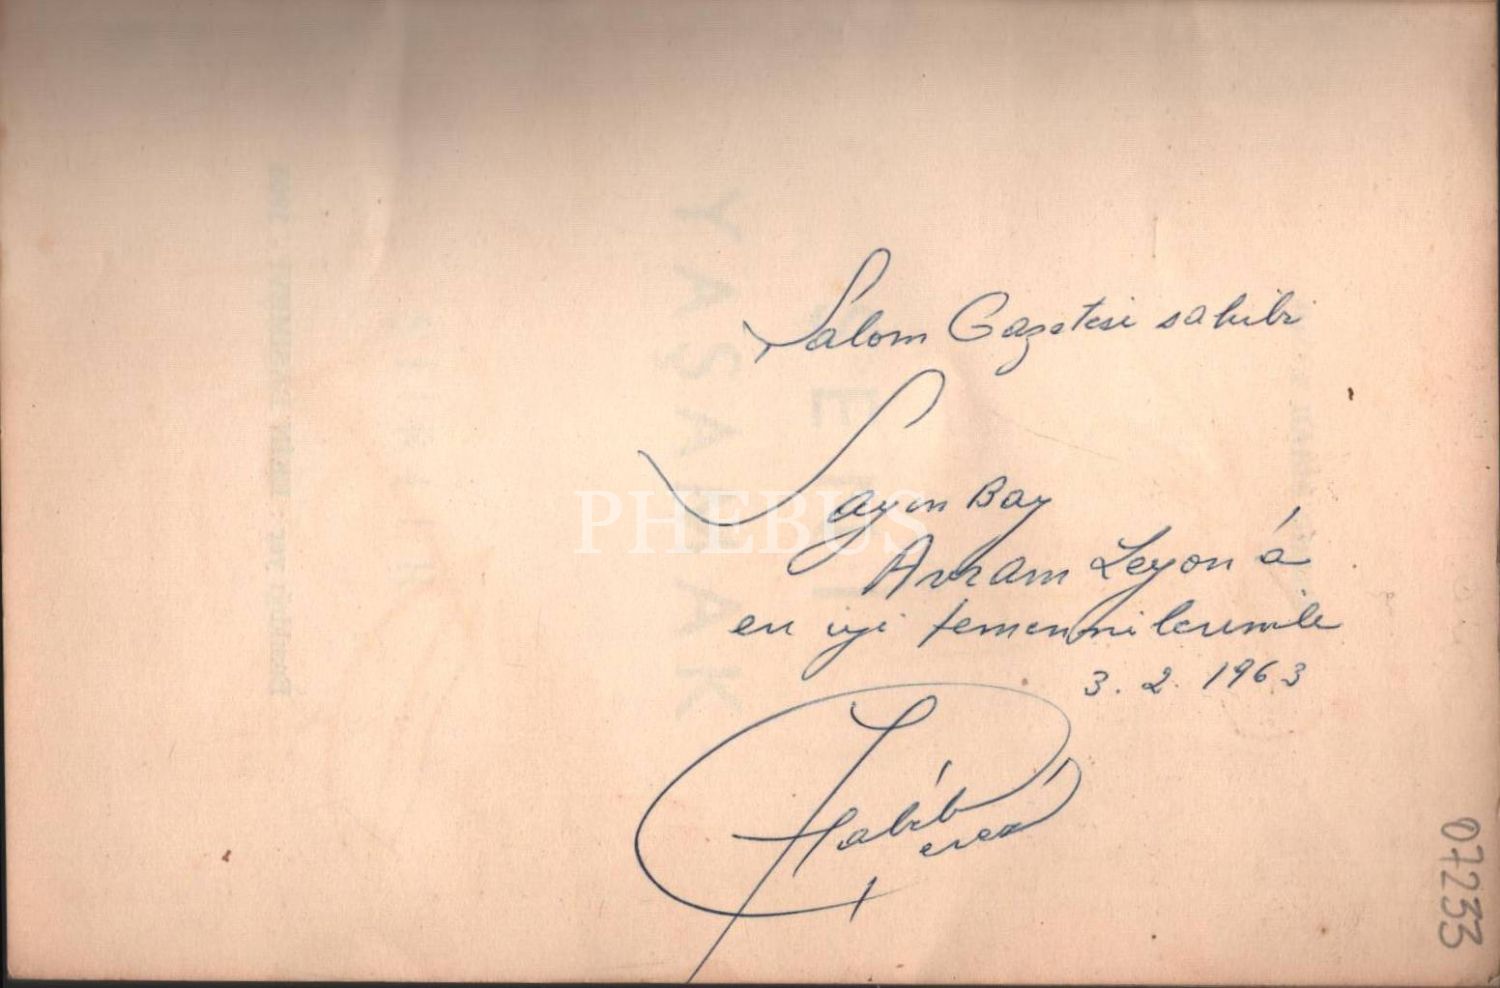 Şalom Gazetesi sahibi
Sayın Bay
Avram Leyon'a
en iyi temennilerimle
3.2.1963
Habib
07233
PHEBUS